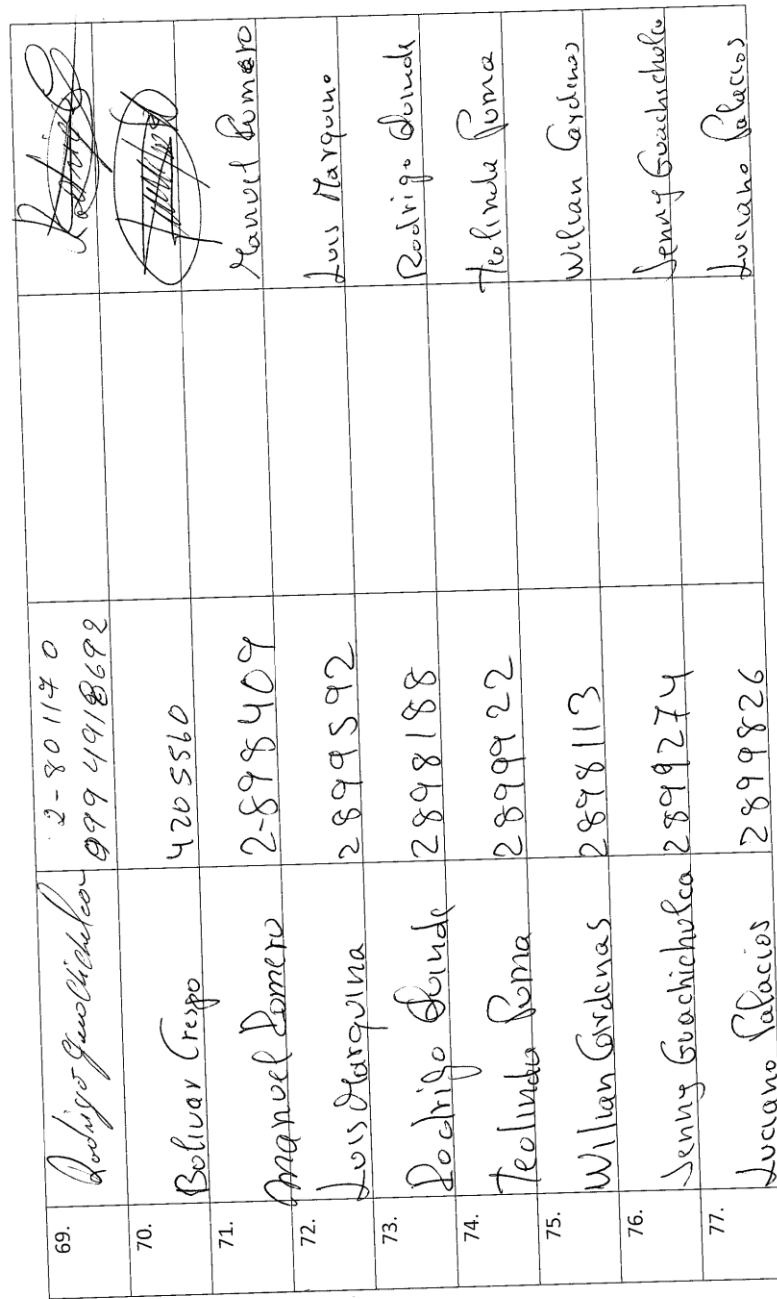 69. Rodrigo 2-801170
0994918692
70. Bolivar Crespo 4205560
71. Manuel Romero 2-898409 Manuel Romero
72. Luis Marquina 2899592 Luis Marquino
73. Rodrigo Quinde 2898188 Rodrigo Quinde
74. Teolinda Puma 2899922 Teolinda Puma
75. Wilian Cardenas 2898113 Wilian Cardenas
76. Jenny Guachichulca 2899274 Jenny Guachichulca
77. Luciano Palacios 2899826 Luciano Palacios